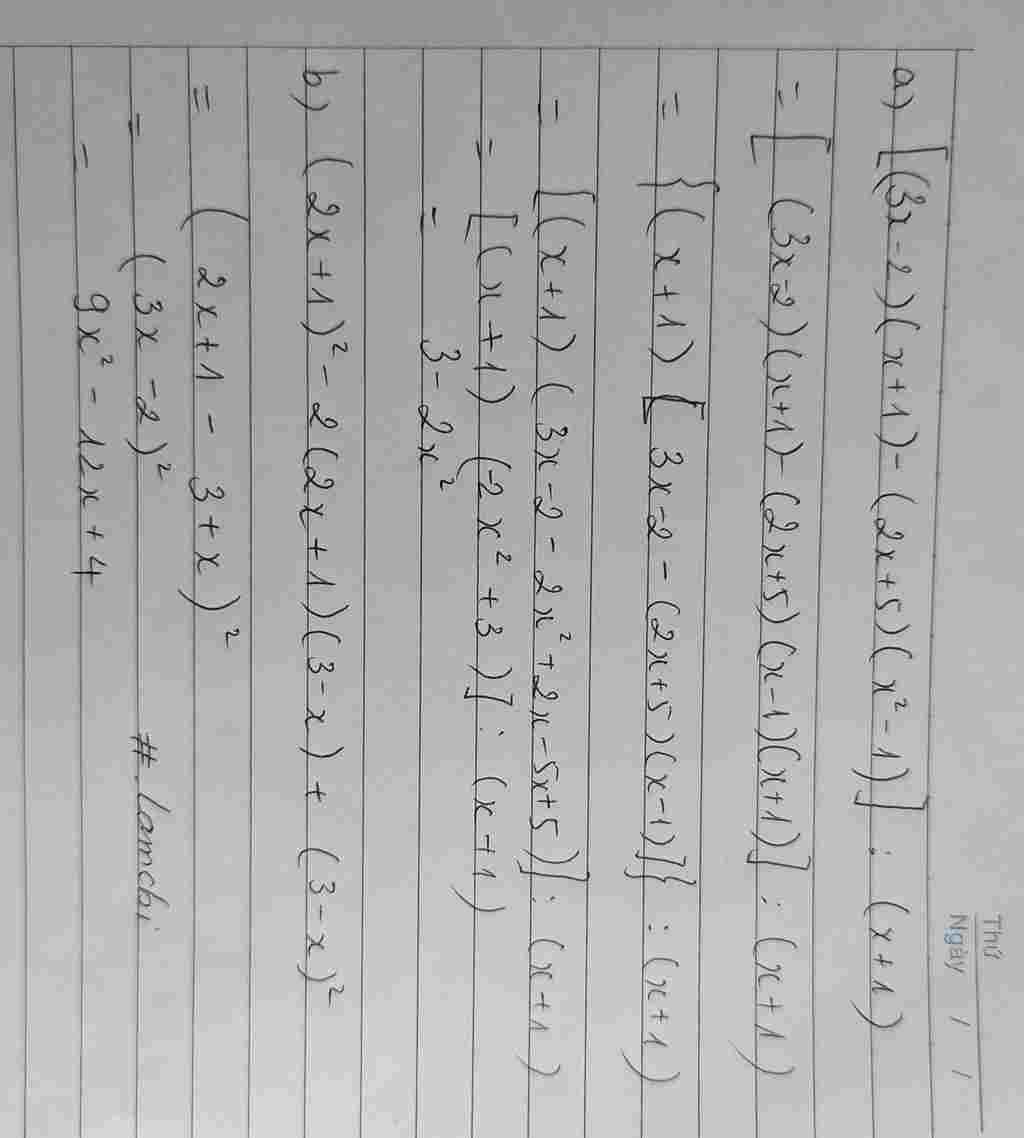 Thứ
Ngày / /
a) [(3x-2)(x+1)-(2x+5)(x²-1)] : (x+1)
= [(3x-2)(x+1)-(2x+5)(x-1)(x+1)] : (x+1)
= {(x+1)[3x-2-(2x+5)(x-1)]} : (x+1)
= [(x+1)(3x-2-2x²+2x-5x+5)] : (x+1)
= [(x+1)(-2x²+3)] : (x+1)
= 3-2x²
b) (2x+1)²-2(2x+1)(3-x)+(3-x)²
= (2x+1-3+x)²
= (3x-2)² #lamchi
= 9x²-12x+4